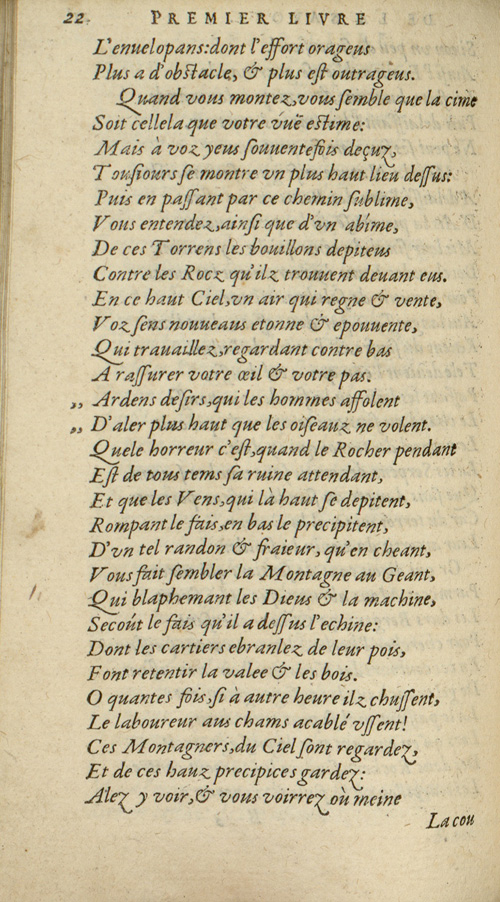 22 PREMIER LIVRE
L'enuelopans:dont l'effort orageus
Plus a d'obstacle, & plus est outrageus.
Quand vous montez,vous semble que la cime
Soit cellela que votre vuë estime:
Mais à voz yeus souuentefois deçuz,
Tousiours se montre vn plus haut lieu dessus:
Puis en passant par ce chemin sublime,
Vous entendez,ainsi que d'vn abîme,
De ces Torrens les bouillons depiteus
Contre les Rocz qu'ilz trouuent deuant eus.
En ce haut Ciel,vn air qui regne & vente,
Voz sens nouueaus etonne & epouuente,
Qui trauaillez,regardant contre bas
A rassurer votre œil & votre pas.
„ Ardens desirs,qui les hommes affolent
„ D'aler plus haut que les oiseauz ne volent.
Quele horreur c'est,quand le Rocher pendant
Est de tous tems sa ruine attendant,
Et que les Vens,qui là haut se depitent,
Rompant le fais,en bas le precipitent,
D'vn tel randon & fraieur, qu'en cheant,
Vous fait sembler la Montagne au Geant,
Qui blaphemant les Dieus & la machine,
Secoút le fais qu'il a dessus l'echine:
Dont les cartiers ebranlez de leur pois,
Font retentir la valee & les bois.
O quantes fois,si à autre heure ilz chussent,
Le laboureur aus chams acablé vssent!
Ces Montagners,du Ciel sont regardez,
Et de ces hauz precipices gardez:
Alez y voir,& vous voirrez où meine
La cou